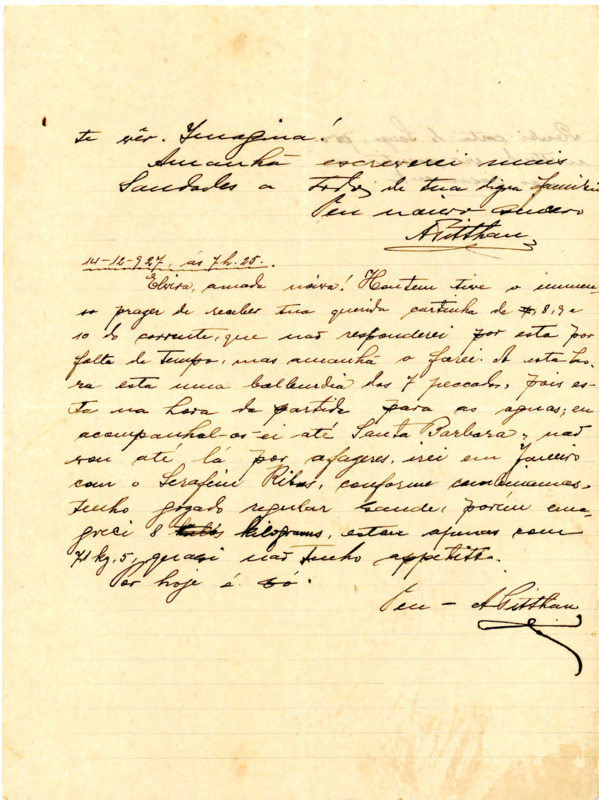 te vêr. Imagina!
Amanhã escreverei mais
Saudades a todos de tua digna familia
Teu noivo sincero
APitthan
14-12-927, ás 7h.25.
Elvira, amada noiva! Hontem tive o immen-
so prazer de receber tua querida cartinha de 8, 9 e
10 do corrente, que não responderei por esta por
falta de tempo, mas amanhã o farei. A esta ho-
ra esta uma balburdia dos 7 peccados, pois es-
ta na hora da partida para as aguas; eu
acompanhal-os-ei até Santa Barbara, não
vou até lá por afazeres, irei em Janeiro
com o Serafim Ribas, conforme
tenho gozado regular saude, porém ema-
greci 8 kilogramas, estou apenas com
71 kg,5, quasi não tenho appetitte.
Por hoje é só.
Teu - APitthan